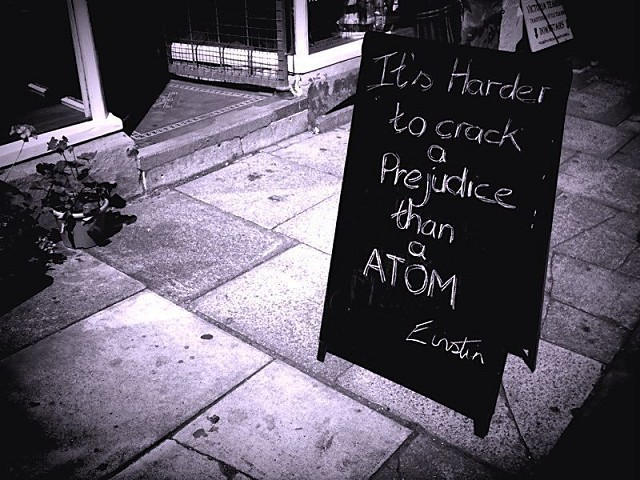 It's Harder
to crack
a
Prejudice
than
a
ATOM
Einstin